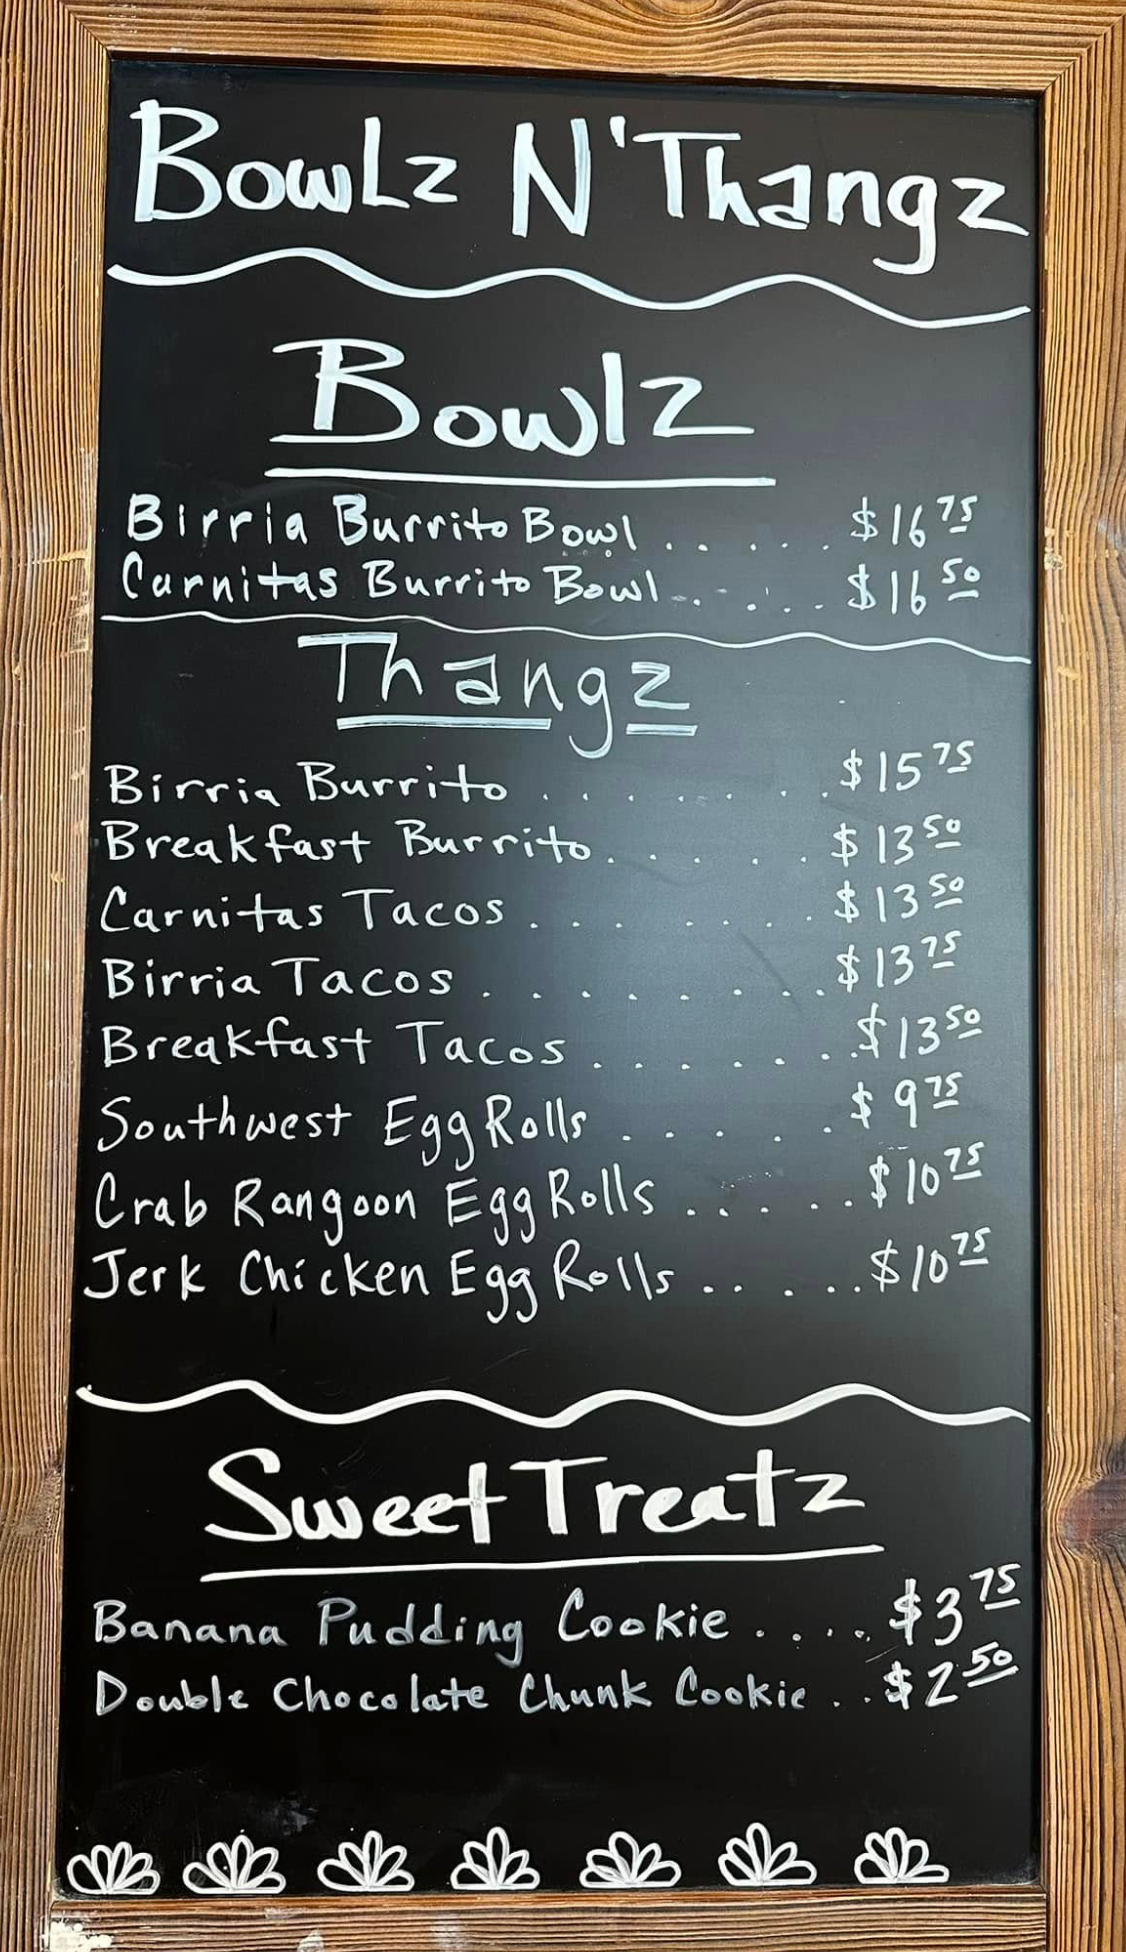 BowLz N' Thangz
Bowlz
Birria Burrito Bowl . . . . . . $16 75
Carnitas Burrito Bowl . . . . . $16 50
Thangz
Birria Burrito . . . . . . . . $15 75
Breakfast Burrito . . . . . . $13 50
Carnitas Tacos . . . . . . . . $13 50
Birria Tacos . . . . . . . . . . $13 75
Breakfast Tacos . . . . . . . $13 50
Southwest Egg Rolls . . . . . . $9 75
Crab Rangoon Egg Rolls . . . . . . $10 75
Jerk Chicken Egg Rolls . . . . . $10 75
Sweet Treatz
Banana Pudding Cookie . . . . . $3 75
Double Chocolate Chunk Cookie . . . $2 50